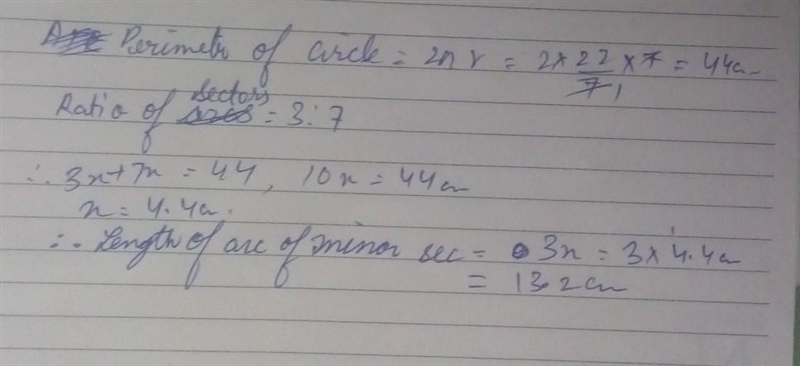 Perimetr of circle = 2πr = 2×22/7×7 = 44cm
Ratio of sectors = 3:7
∴ 3x+7x = 44, 10x = 44cm
x = 4.4cm.
∴ Length of arc of minor sec = 3x = 3×4.4cm
= 13.2cm